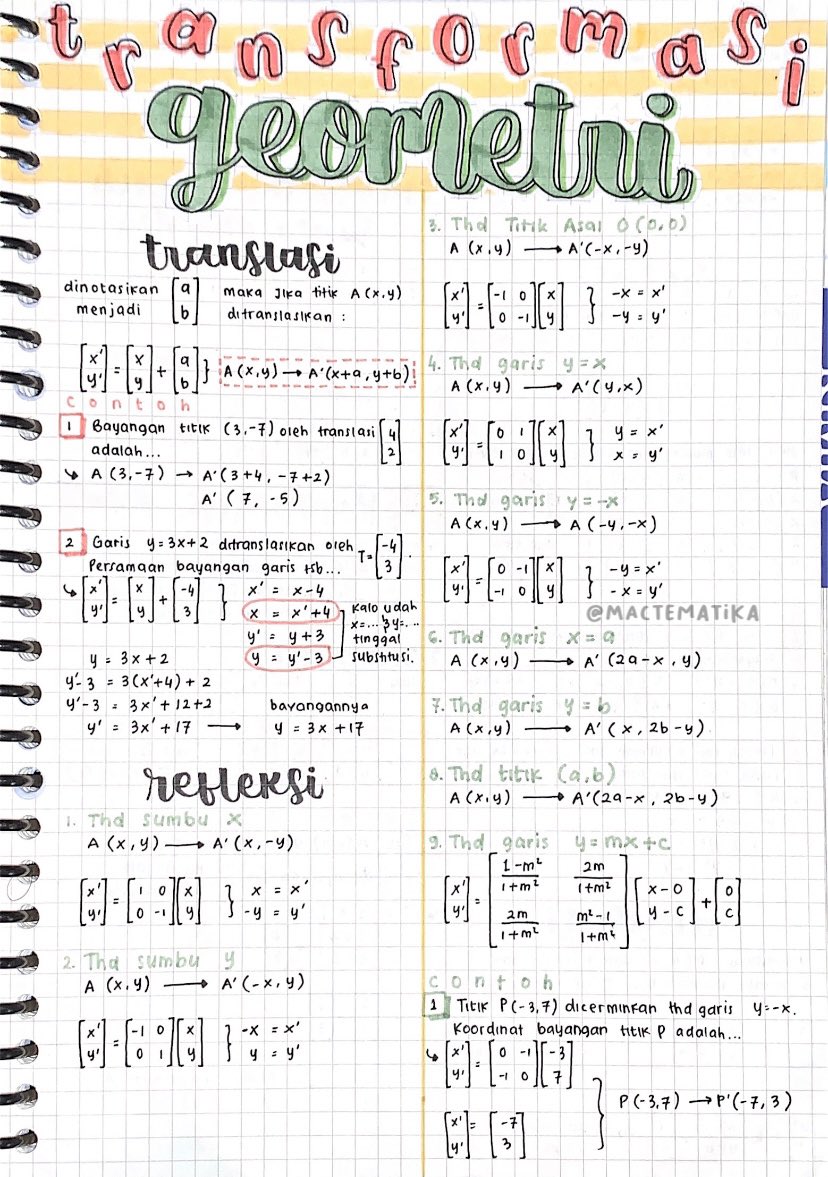 transformasi
geometri
translasi
dinotasikan [a b] maka jika titik A(x,y)
menjadi ditranslasikan :
[x' y'] = [x y] + [a b] } A(x,y) → A'(x+a, y+b)
contoh
1 Bayangan titik (3,-7) oleh translasi [4 2]
adalah...
↳ A (3,-7) → A'(3+4, -7+2)
A' (7, -5)
2 Garis y=3x+2 ditranslasikan oleh T=[-4 3].
Persamaan bayangan garis tsb...
↳ [x' y'] = [x y] + [-4 3] }
x' = x-4
x = x'+4
y' = y+3
y = y'-3
Kalo udah
x=... & y=...
tinggal
substitusi.
y = 3x+2
y'-3 = 3(x'+4) + 2
y'-3 = 3x'+12+2
y' = 3x'+17 → bayangannya
y = 3x+17
refleksi
1. Thd sumbu x
A (x,y) → A'(x,-y)
[x' y'] = [1 0 0 -1] [x y] } x = x'
-y = y'
2. Thd sumbu y
A (x,y) → A'(-x,y)
[x' y'] = [-1 0 0 1] [x y] } -x = x'
y = y'
3. Thd Titik Asal O (0,0)
A (x,y) → A'(-x,-y)
[x' y'] = [-1 0 0 -1] [x y] } -x = x'
-y = y'
4. Thd garis y=x
A (x,y) → A'(y,x)
[x' y'] = [0 1 1 0] [x y] } y = x'
x = y'
5. Thd garis y=-x
A (x,y) → A (-y,-x)
[x' y'] = [0 -1 -1 0] [x y] } -y = x'
-x = y'
@MACTEMATIKA
6. Thd garis x=a
A (x,y) → A' (2a-x, y)
7. Thd garis y=b
A (x,y) → A' (x, 2b-y)
8. Thd titik (a,b)
A (x,y) → A'(2a-x, 2b-y)
9. Thd garis y=mx+c
[x' y'] = [1-m²/1+m² 2m/1+m² 2m/1+m² m²-1/1+m²] [x-0 y-c] + [0 c]
contoh
1 Titik P(-3,7) dicerminkan thd garis y=-x.
Koordinat bayangan titik P adalah...
↳ [x' y'] = [0 -1 -1 0] [-3 7]
[x' y'] = [-7 3]
} P(-3,7) → P'(-7,3)